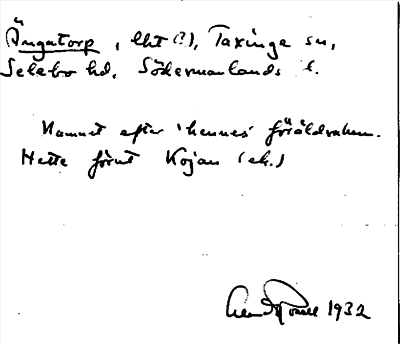 Ängatorp, lht (?), Taxinge sn,
Selebo hd, Södermanlands l.
Namnet efter 'hennes' föräldrahem.
Hette förut Kojan (ek.)
1932